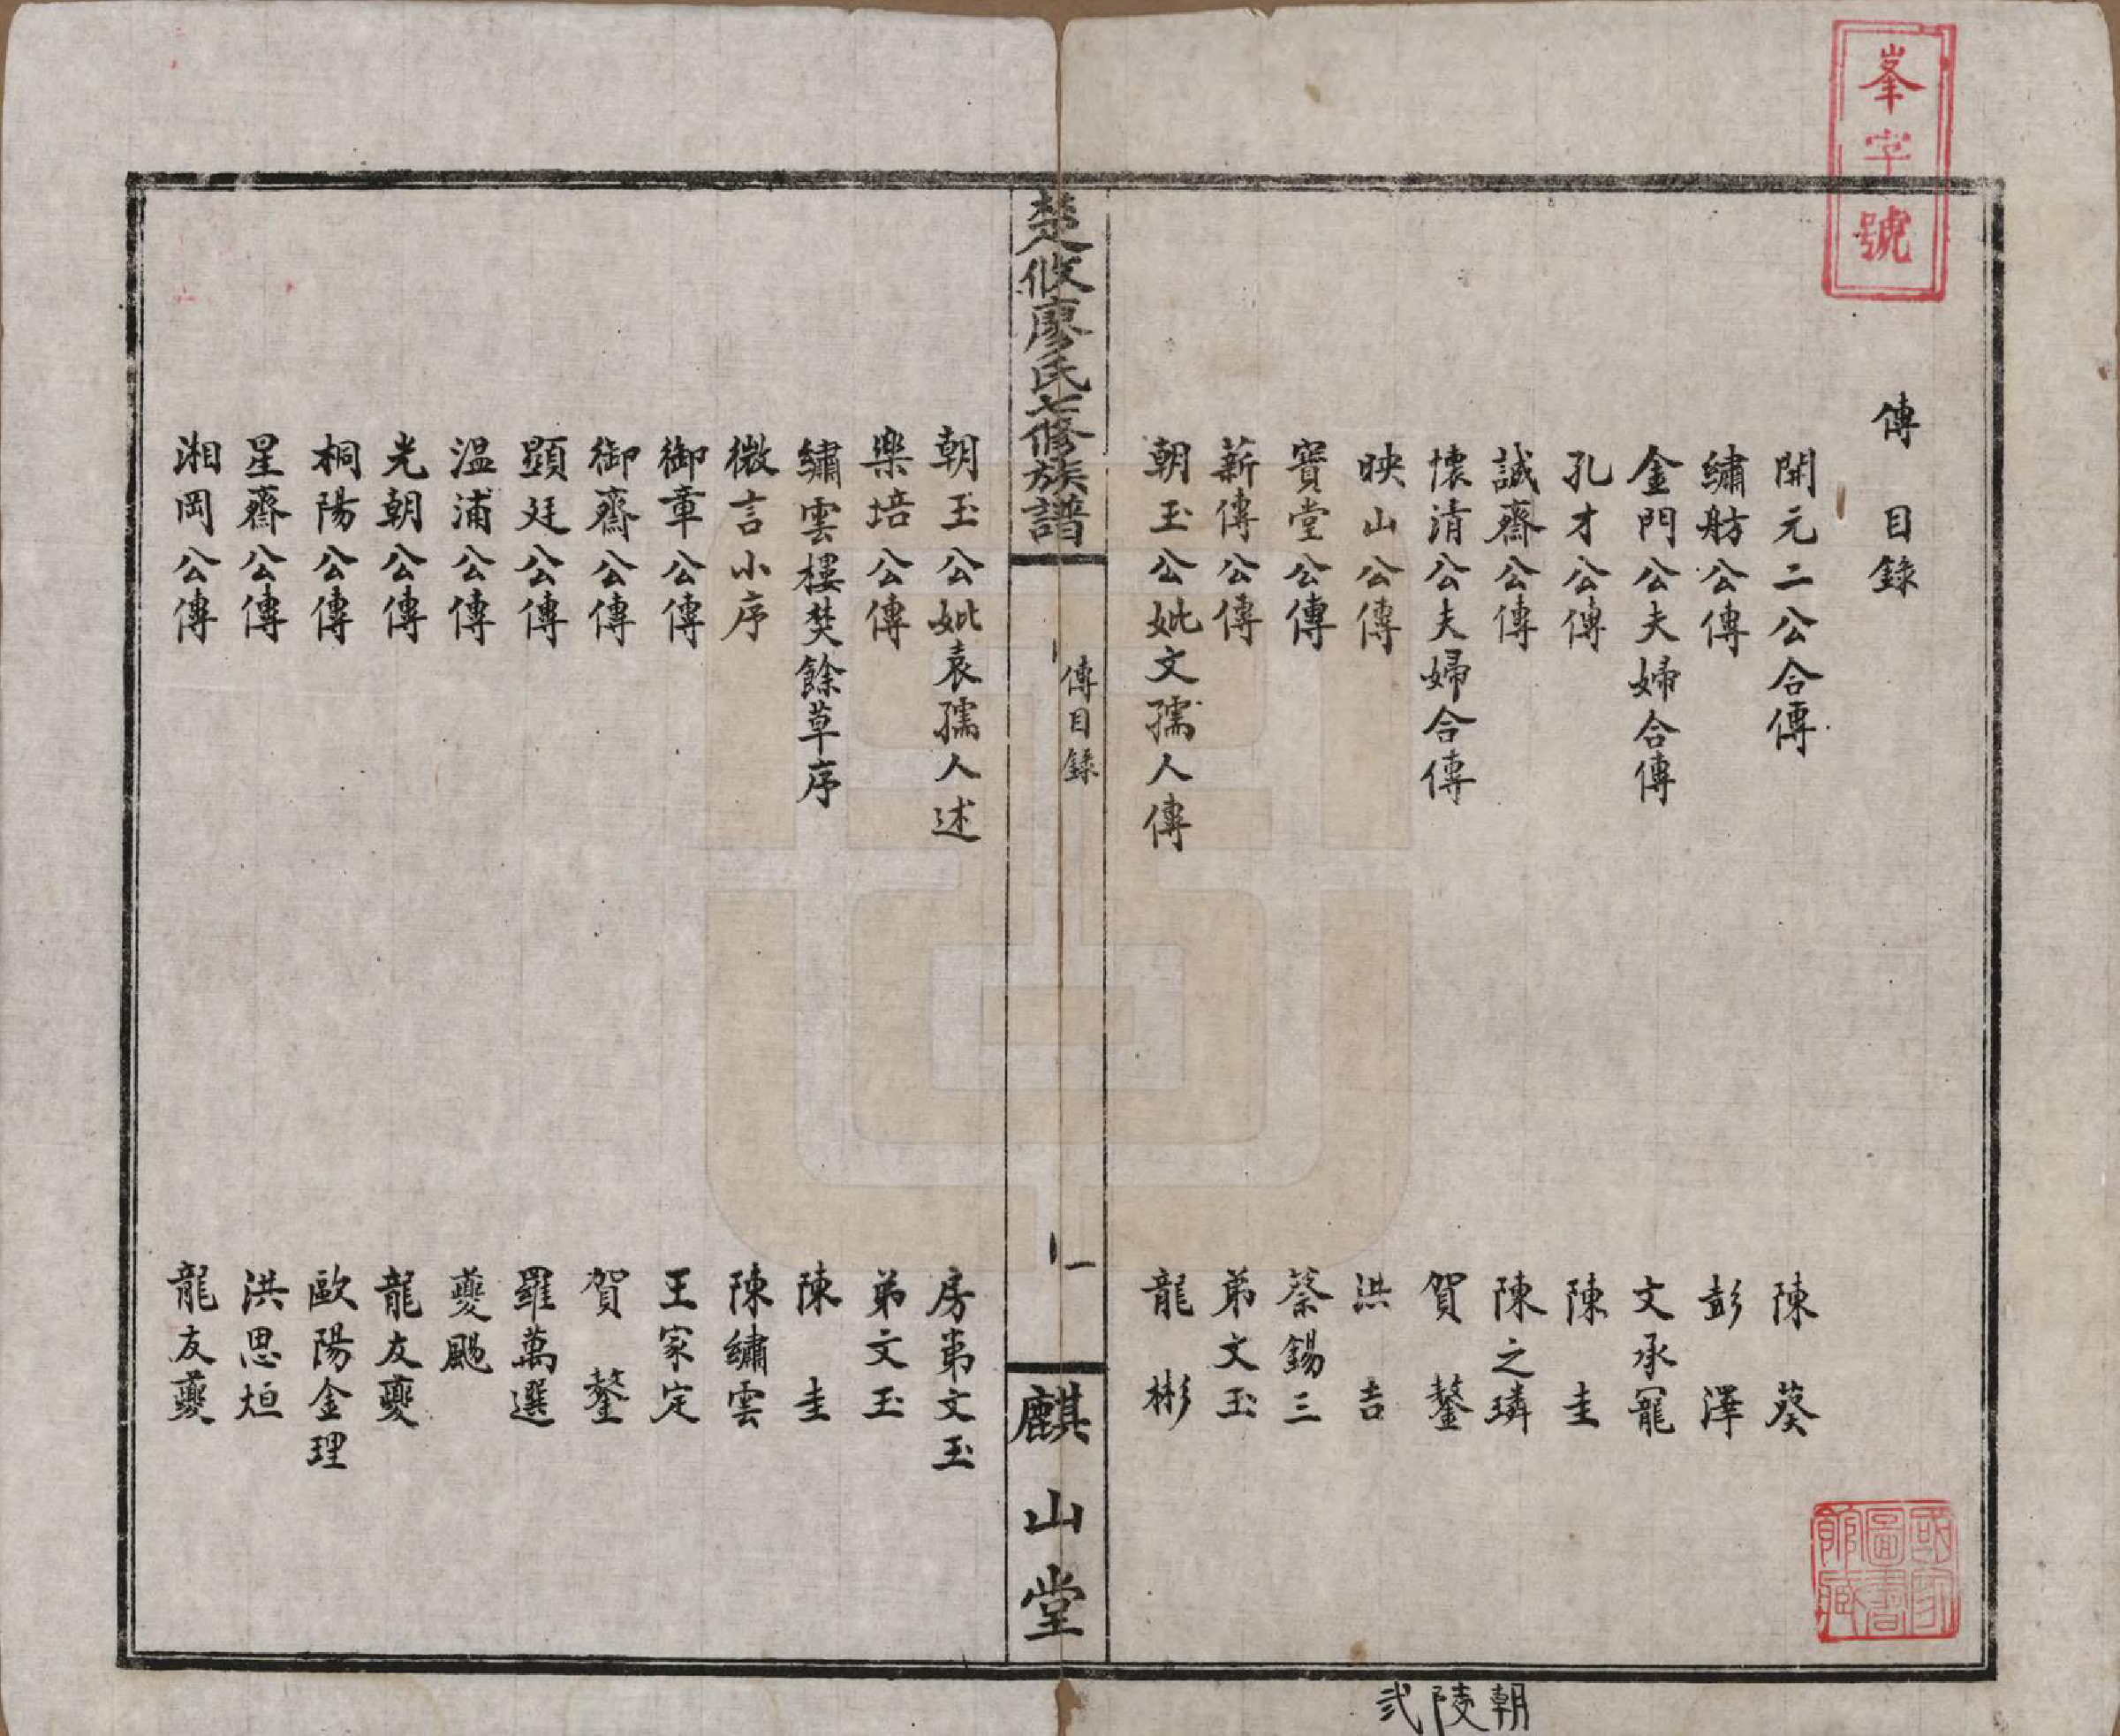 峯字號
傳目錄
開元二公合傳 陳葵
繡舫公傳 彭澤
金門公夫婦合傳 文承寵
孔才公傳 陳圭
誠齋公傳 陳之璘
懷清公夫婦合傳 賀鏊
映山公傳 洪吉
寶堂公傳 蔡錫三
薪傳公傳 弟文玉
朝玉公妣文孺人傳 龍彬
楚攸廖氏七修族譜
傳目錄
一
麒山堂
朝玉公妣袁孺人述 房弟文玉
樂培公傳 弟文玉
繡雲樓焚餘草序 陳圭
微言小序 陳繡雲
御章公傳 王家定
御齋公傳 賀鏊
顕廷公傳 羅萬選
溫浦公傳 夔颺
光朝公傳 龍友夔
桐陽公傳 歐陽金理
星齋公傳 洪思烜
湘岡公傳 龍友夔
國家圖書館藏
朝陵弍